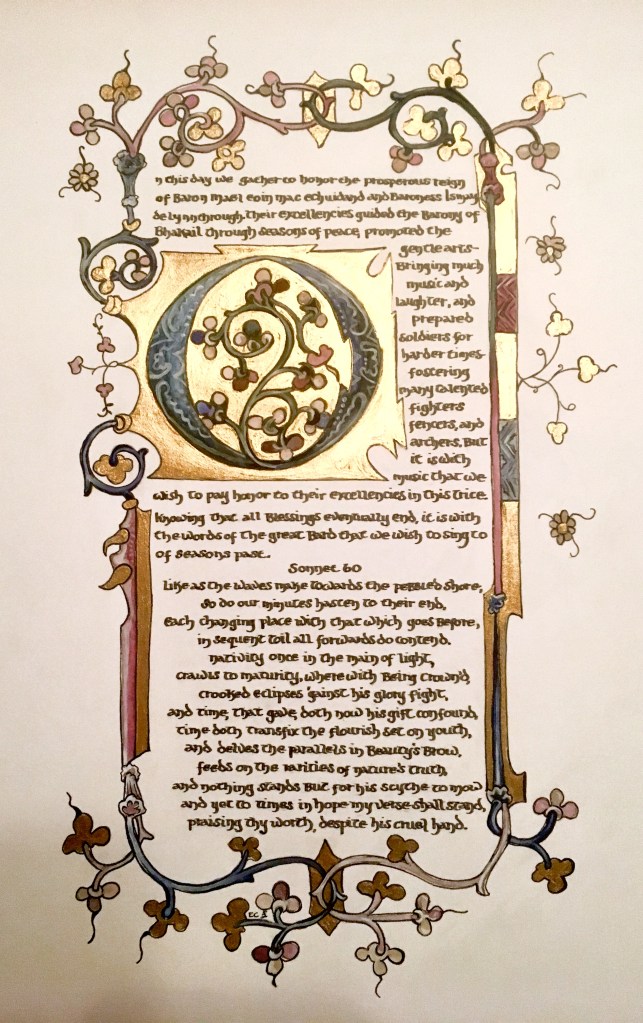 On this day we gather to honor the prosperous reign
of Baron mael eoin mac echuidand and Baroness Ismay
de Lynnthrough, their excellencies guided the Barony of
Bhakail through seasons of peace, promoted the
gentle arts-
Bringing much
music and
laughter, and
prepared
soldiers for
harder times-
fostering
many talented
fighters
fencers, and
archers. But
it is with
music that we
wish to pay honor to their excellencies in this trice.
Knowing that all Blessings eventually end, it is with
the words of the great Bard that we wish to sing to
of seasons past.
Sonnet 60
Like as the waves make towards the pebble'd shore,
So do our minutes hasten to their end,
Each changing place with that which goes Before,
in sequent toil all forwards do contend.
nativity once in the main of light,
crawls to maturity, where with Being crown'd,
crooked eclipses 'gainst his glory fight,
and time, that gave, doth now his gift confound,
time doth transfix the flourish set on youth,
and delves the parallels in Beauty's Brow,
feeds on the rarities of nature's truth,
and nothing stands But for his scythe to mow
and yet to times in hope my verse shall stand,
praising thy worth, despite his cruel hand.